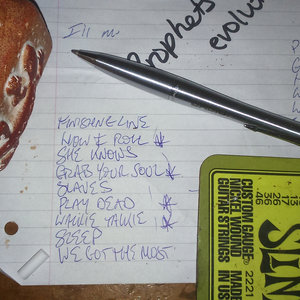 I'll
Prophets
evolu
FINISHING LINE
HOW I ROLL *
SHE KNOWS
GRAB YOUR SOUL *
SLAVES
PLAY DEAD *
WALKIE TALKIE *
SLEEP
WE GOT THE MOST
CUSTOM GAUGE
NICKEL WOUND
GUITAR STRINGS
2221
MADE
IN US
13
17
26
36
.46